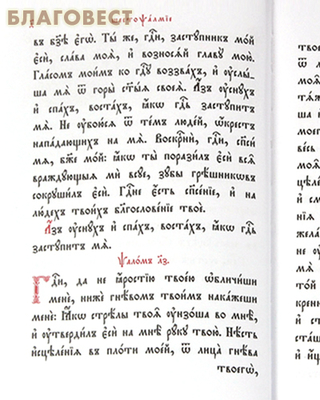 БЛАГОВЕСТ
шестоѱалмїе
въ бз҃ѣ є҆гѡ̀. Ты́ же, гдⷭ҇и, застꙋ́пникъ мо́й
є҆сѝ, сла́ва моѧ̀, и҆ возносѧ́й главꙋ̀ мою̀.
Гла́сомъ мои́мъ ко гдⷭ҇ꙋ воззва́хъ, и҆ ᲂу҆слы́-
ша мѧ̀ ѿ горы̀ ст҃ы́ѧ своеѧ̀. А҆́зъ ᲂу҆снꙋ́хъ
и҆ спа́хъ, воста́хъ, ꙗ҆́кѡ гдⷭ҇ь застꙋ́питъ
мѧ̀. Не ᲂу҆бою́сѧ ѿ те́мъ люде́й, ѡ҆́крестъ
напа́дающихъ на мѧ̀. Воскрⷭ҇нѝ, гдⷭ҇и, сп҃си́
мѧ, бж҃е мо́й: ꙗ҆́кѡ ты̀ порази́лъ є҆сѝ всѧ̑
враждꙋ́ющыѧ мѝ всꙋ́е, зꙋ́бы грѣ́шникѡвъ
сокрꙋши́лъ є҆сѝ. Гдⷭ҇не є҆́сть сп҃се́нїе, и҆ на
лю́дехъ твои́хъ бл҃гослове́нїе твоѐ.
А҆́зъ ᲂу҆снꙋ́хъ и҆ спа́хъ, воста́хъ, ꙗ҆́кѡ гдⷭ҇ь
застꙋ́питъ мѧ̀.
Ѱало́мъ л҃з.
Гдⷭ҇и, да не ꙗ҆́ростїю твое́ю ѡ҆бличи́ши
менѐ, нижѐ гнѣ́вомъ твои́мъ нака́жеши
менѐ: Ꙗ҆́кѡ стрѣ́лы твоѧ̑ ᲂу҆нзо́ша во мнѣ̀,
и҆ ᲂу҆тверди́лъ є҆сѝ на мнѣ̀ рꙋ́кꙋ твою̀. Нѣ́сть
и҆сцѣле́нїѧ въ пло́ти мое́й, ѿ лица̀ гнѣ́ва
твоегѡ̀,